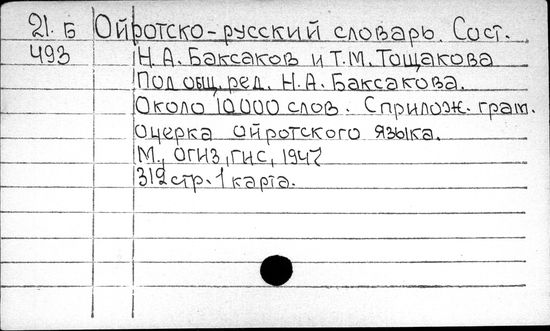 21. Б Ойротско-русский словарь. Сост.
493 Н. А. Баксаков и Т. М. Тощакова
Под общ. ред. Н. А. Баксакова.
Около 10000 слов. С прилож. грам.
очерка ойротского языка.
М., ОГИЗ, ГИС, 1947
312 стр. 1 карта.